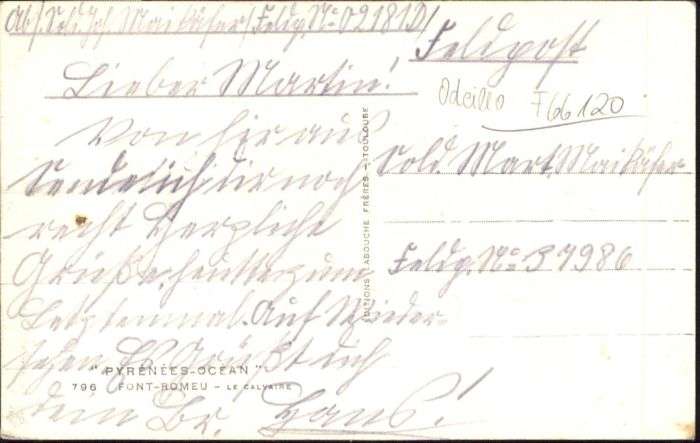 Ab/ Sold. Joh. Maikäfer/ Feldp. No 02181D/
Feldpost
Lieber Martin!
Odeillo F66120
Von hir aus
Sende ich dir noch
recht Herzliche
Grüße. heute zum
Letztenmal. Auf Wieder-
sehen Es Grüßt dich
dein Br. Hans!
Sold. Mart. Maikäfer
Feldp. No 37986
EDITIONS LABOUCHE FRÈRES - TOULOUSE
"PYRÉNÉES-OCÉAN"
796 FONT-ROMEU - LE CALVAIRE